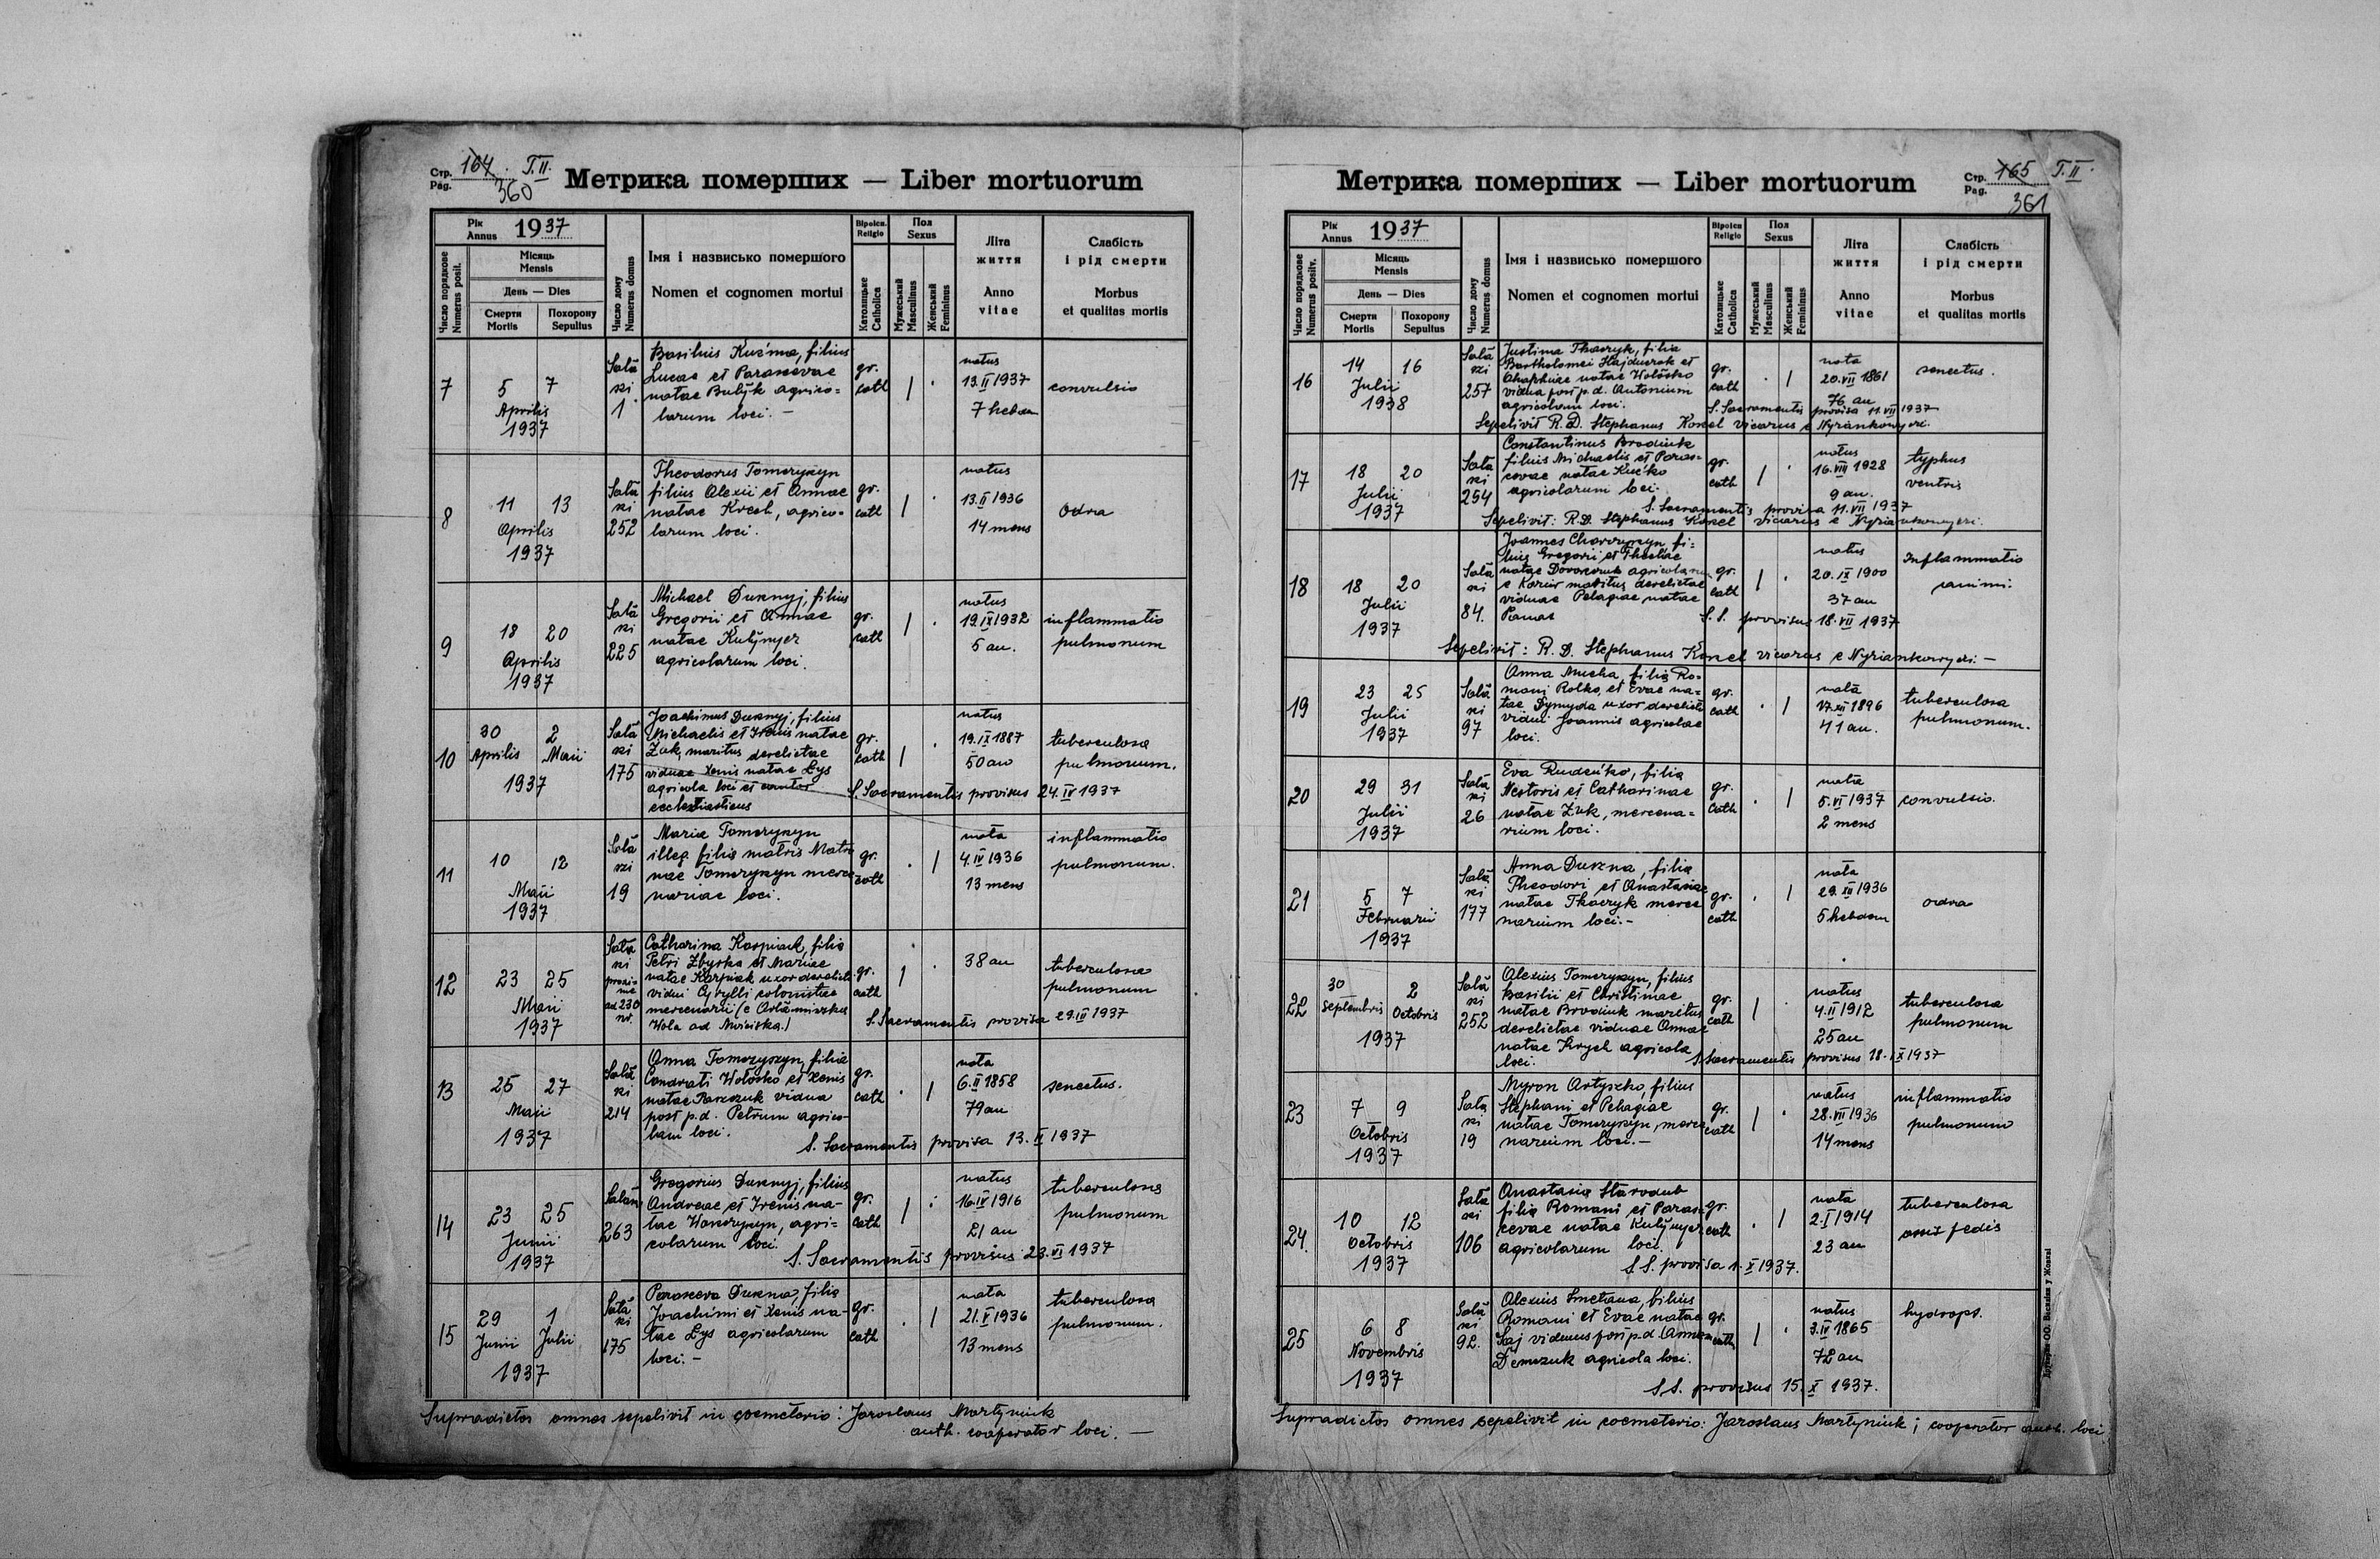 Стр. Pag. 164. T.II.
360
Метрика померших — Liber mortuorum
Рік Annus 1937
Число порядкове Numerus posit.
Місяць Mensis
День — Dies
Смерти Mortis
Похорону Sepultus
Число дому Numerus domus
Імя і назвисько помершого
Nomen et cognomen mortui
Віроісп. Religio
Католицьке Catholica
Пол Sexus
Мужеський Masculinus
Женський Femininus
Літа життя
Anno vitae
Слабість і рід смерти
Morbus et qualitas mortis
7
5 7
Aprilis
1937
Sała
ski
1
Basilius Kuźma, filius
Lucae et Parascevae
natae Bulyk agrico-
larum loci. —
gr.
cath
natus
13.II 1937
7 hebdom
convulsio
8
11 13
Aprilis
1937
Sała
ski
252
Theodorus Tomczyszyn
filius Alexii et Annae
natae Krech, agrico-
larum loci.
gr.
cath
natus
13.II 1936
14 mens
odra
9
18 20
Aprilis
1937
Sała
ski
225
Michael Duknyj, filius
Gregorii et Annae
natae Kulynycz
agricolarum loci.
gr.
cath
natus
19.IX 1932
5 an.
inflammatio
pulmonum
10
30 2
Aprilis Maii
1937
Sała
ski
175
Joachimus Duknyj, filius
Michaelis et Irenis natae
Żuk, maritus derelictae
viduae Xenis natae Łys
agricola loci et cantor
ecclesiasticus
gr.
cath
natus
19.IX 1887
50 an
tuberculosa
pulmonum.
S. Sacramentis provisus 24.IV 1937
11
10 12
Maii
1937
Sała
ski
19
Maria Tomczyszyn
illeg. filia matris Matro
nae Tomczyszyn merce
nariae loci.
gr.
cath
nata
4.IV 1936
13 mens
inflammatio
pulmonum.
12
23 25
Maii
1937
Sała
ski
proxi-
me
ad 230
nr.
Catharina Karpiak, filia
Petri Zbyrka et Mariae
natae Karpiak uxor derelicti
vidui Cyrylli colonistae
mercenarii
gr.
cath
38 an
tuberculosa
pulmonum
S. Sacramentis provisa 29.IV 1937
13
25 27
Maii
1937
Sała
ski
214
Anna Tomczyszyn, filia
Condrati Wołoszko et Xenis
natae vidua
post p.d. Petrum agrico-
lam loci.
gr.
cath
nata
6.II 1858
79 an
senectus.
S. Sacramentis provisa 13.II 1937
14
23 25
Junii
1937
Sałas
263
Gregorius Duknyj, filius
Andreae et Irenis na-
tae agri-
colarum loci.
gr.
cath
natus
16.IV 1916
21 an
tuberculosa
pulmonum
S. Sacramentis provisus 23.VI 1937
15
29 1
Junii Julii
1937
Sała
ski
175
Parasceva Dukna, filia
Joachimi et Xenis na-
tae Łys agricolarum
loci. —
gr.
cath
nata
21.V 1936
13 mens
tuberculosa
pulmonum.
Supradictos omnes sepelivit in coemeterio: Jaroslaus Martyniuk
auth. cooperator loci. —
Стр. Pag. 165 T.II.
361
Метрика померших — Liber mortuorum
Рік Annus 1937
Число порядкове Numerus positiv.
Місяць Mensis
День — Dies
Смерти Mortis
Похорону Sepultus
Число дому Numerus domus
Імя і назвисько помершого
Nomen et cognomen mortui
Віроісп. Religio
Католицьке Catholica
Пол Sexus
Мужеський Masculinus
Женський Femininus
Літа життя
Anno vitae
Слабість і рід смерти
Morbus et qualitas mortis
16
14 16
Julii
1938
Sała
ski
257
Justina Tkaczyk, filia
Bartholomei Hajduczok et
Ahaphiae natae Wołoszko
vidua post p.d. Antonium
agricolam loci.
gr.
cath
nata
20.VII 1861
76 an
senectus.
S. Sacramentis provisa 11.VII 1937
Sepelivit R.D. Stephanus Konel vicarius e Nyrankowyczi.
17
18 20
Julii
1937
Sała
ski
254
Constantinus Brodiuk
filius Michaelis et Paras-
cevae natae Kućko
agricolarum loci.
gr.
cath
natus
16.VIII 1928
9 an.
typhus
ventris
S. Sacramentis provisa 11.VII 1937
Sepelivit: R.D. Stephanus Konel vicarius e Nyriankowyczi.
18
18 20
Julii
1937
Sała
ski
84.
Joannes fi-
lius Gregorii et Theclae
natae agricolarum
e maritus derelictae
viduae Pelagiae natae
Panas
gr.
cath
natus
20.IX 1900
37 an
Inflammatio
S.S. provisus 18.VII 1937
Sepelivit: R.D. Stephanus Konel vicarius e Nyriankowyczi. —
19
23 25
Julii
1937
Sała
ski
97
Anna Mucha, filia Ro-
mani Rolko, et Evae na-
tae Dymyda uxor derelicti
vidui Joannis agricolae
loci.
gr.
cath
nata
17.XI 1896
41 an.
tuberculosa
pulmonum.
20
29 31
Julii
1937
Sała
ski
26
Eva Rudeńko, filia
Nestoris et Catharinae
natae Żuk, mercena-
rium loci.
gr.
cath
nata
5.VI 1937
2 mens
convulsio.
21
5 7
Februarii
1937
Sała
ski
177
Anna Dukna, filia
Theodori et Anastasiae
natae Tkaczyk merce
narium loci. -
gr.
cath
nata
29.XII 1936
5 hebdom
odra
22
30 2
Septembris Octobris
1937
Sała
ski
252
Alexius Tomczyszyn, filius
Basilii et Christinae
natae Brodiuk maritus
derelictae viduae Annae
natae Krych agricola
loci.
gr.
cath
natus
4.II 1912
25 an
tuberculosa
pulmonum
S. Sacramentis provisus 18.IX 1937
23
7 9
Octobris
1937
Sała
ski
19
Myron Artyszko, filius
Stephani et Pelagiae
natae Tomczyszyn, merce
narium loci. —
gr.
cath
natus
28.VII 1936
14 mens
inflammatio
pulmonum
24.
10 12
Octobris
1937
Sała
ski
106
Anastasia Starodub
filia Romani et Paras-
cevae natae Kulynycz
agricolarum loci.
gr.
cath
nata
2.I 1914
23 an
tuberculosa
ossis pedis
S.S. provisa 1.X 1937.
25
6 8
Novembris
1937
Sała
ski
92.
Alexius Smetana, filius
Romani et Evae natae
Saj viduus post p.d. Annam
Demczuk agricola loci.
gr.
cath
natus
3.IV 1865
72 an
hydrops.
S.S. provisus 15.X 1937.
Supradictos omnes sepelivit in coemeterio: Jaroslaus Martyniuk; cooperator auth. loci
Друкарня ОО. Василіян у Жовкві